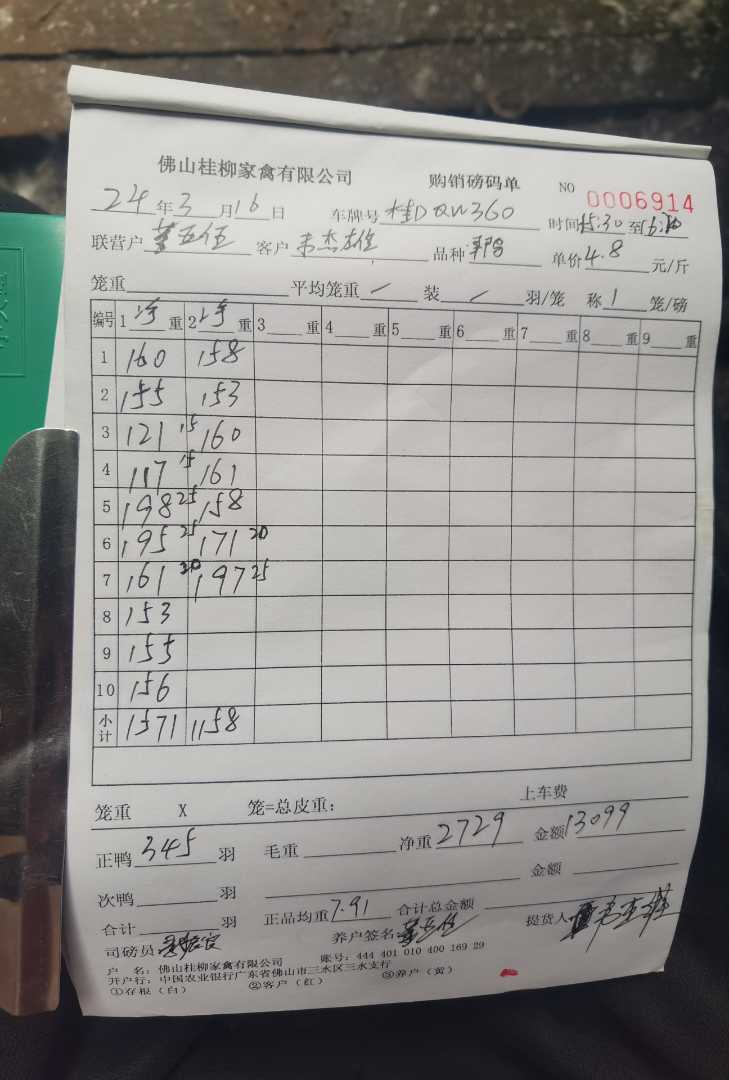 佛山桂柳家禽有限公司 购销磅码单 NO 0006914
24年3月16日 车牌号桂DQW360 时间15:30至
联营户 客户韦杰雄 品种 单价4.8元/斤
笼重 平均笼重/ 装/羽/笼 称1笼/磅
编号 1净重 2净重 3重 4重 5重 6重 7重 8重 9重
1 160 158
2 155 153
3 121 15 160
4 117 15 161
5 198 25 158
6 195 25 171 20
7 161 20 197 25
8 153
9 155
10 156
小计 1571 1158
笼重 X 笼=总皮重： 上车费
正鸭345羽 毛重 净重2729 金额13099
次鸭 羽 金额
合计 羽 正品均重7.91 合计总金额
司磅员 养户签名 提货人韦杰雄
户 名：佛山桂柳家禽有限公司 账号：444 401 010 400 169 29
开户行：中国农业银行广东省佛山市三水区三水支行
①存根（白） ②客户（红） ③养户（黄）